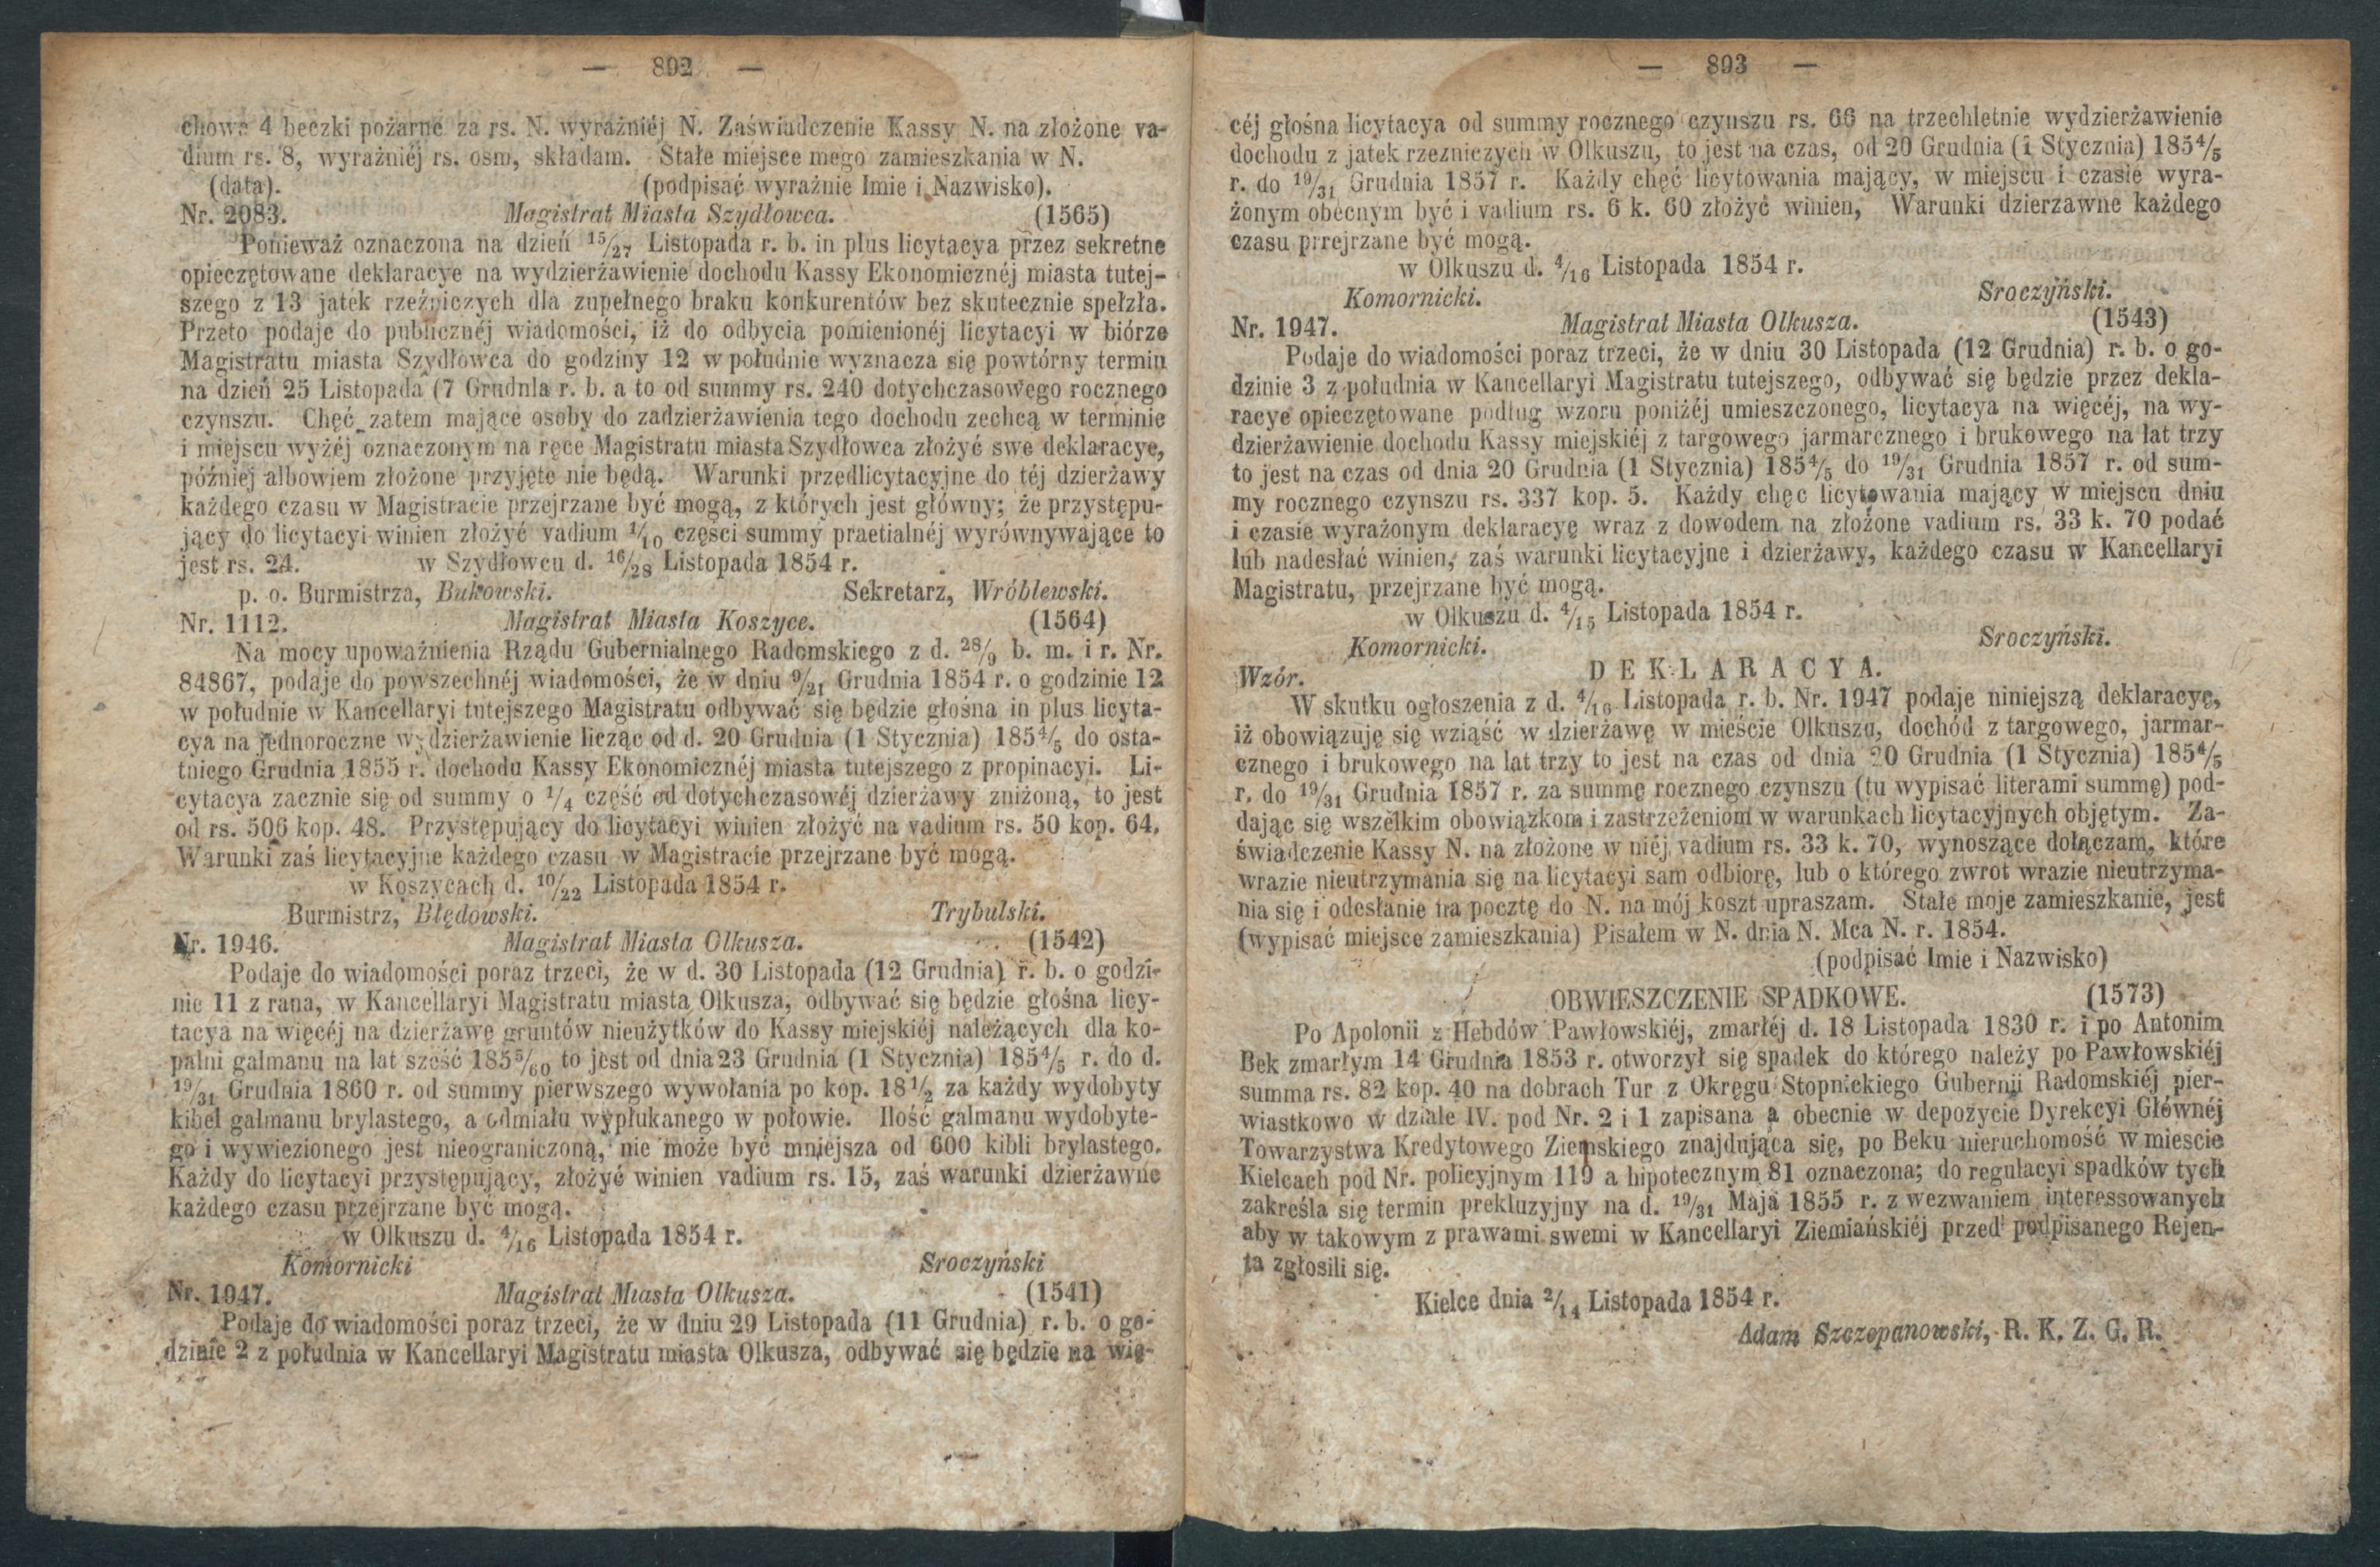 — 892 —
chowa 4 beczki pożarne za rs. N. wyraźniéj N. Zaświadczenie Kassy N. na złożone va-
dium rs. 8, wyraźniéj rs. osm, składam. Stałe miejsce mego zamieszkania w N.
(data). (podpisać wyraźnie Imie i Nazwisko).
Nr. 2083. Magistrat Miasta Szydłowca. (1565)
Ponieważ oznaczona na dzień 15/27 Listopada r. b. in plus licytacya przez sekretne
opieczętowane deklaracye na wydzierżawienie dochodu Kassy Ekonomicznéj miasta tutej-
szego z 13 jatek rzeźniczych dla zupełnego braku konkurentów bez skutecznie spełzła.
Przeto podaje do publicznéj wiadomości, iż do odbycia pomienionéj licytacyi w biórze
Magistratu miasta Szydłowca do godziny 12 w południe wyznacza się powtórny termin
na dzień 25 Listopada (7 Grudnla r. b. a to od summy rs. 240 dotychczasowego rocznego
czynszu. Chęć zatem mające osoby do zadzierżawienia tego dochodu zechcą w terminie
i miejscu wyżéj oznaczonym na ręce Magistratu miasta Szydłowca złożyć swe deklaracye,
później albowiem złożone przyjęte nie będą. Warunki przedlicytacyjne do téj dzierżawy
każdego czasu w Magistracie przejrzane być mogą, z których jest główny; że przystępu-
jący do licytacyi winien złożyć vadium 1/10 częsci summy praetialnéj wyrównywające to
jest rs. 24. w Szydłowcu d. 16/28 Listopada 1854 r.
p. o. Burmistrza, Bukowski. Sekretarz, Wróblewski.
Nr. 1112. Magistrat Miasta Koszyce. (1564)
Na mocy upoważnienia Rządu Gubernialnego Radomskiego z d. 28/9 b. m. i r. Nr.
84867, podaje do powszechnéj wiadomości, że w dniu 9/21 Grudnia 1854 r. o godzinie 12
w południe w Kancellaryi tutejszego Magistratu odbywać się będzie głośna in plus licyta-
cya na jednoroczne wydzierżawienie licząc od d. 20 Grudnia (1 Stycznia) 1854/5 do osta-
tniego Grudnia 1855 r. dochodu Kassy Ekonomicznéj miasta tutejszego z propinacyi. Li-
cytacya zacznie się od summy o 1/4 część od dotychczasowéj dzierżawy zniżoną, to jest
od rs. 506 kop. 48. Przystępujący do licytacyi winien złożyć na vadium rs. 50 kop. 64.
Warunki zaś licytacyjne każdego czasu w Magistracie przejrzane być mogą.
w Koszycach d. 10/22 Listopada 1854 r.
Burmistrz, Błędowski. Trybulski.
Nr. 1946. Magistrat Miasta Olkusza. (1542)
Podaje do wiadomości poraz trzeci, że w d. 30 Listopada (12 Grudnia) r. b. o godzi-
nie 11 z rana, w Kancellaryi Magistratu miasta Olkusza, odbywać się będzie głośna licy-
tacya na więcéj na dzierżawę gruntów nieużytków do Kassy miejskiéj należących dla ko-
palni galmanu na lat sześć 1855/60 to jest od dnia 23 Grudnia (1 Stycznia) 1854/5 r. do d.
19/31 Grudnia 1860 r. od summy pierwszego wywołania po kop. 18 1/2 za każdy wydobyty
kibel galmanu brylastego, a odmiału wypłukanego w połowie. Ilość galmanu wydobyte-
go i wywiezionego jest nieograniczoną, nie może być mniejsza od 600 kibli brylastego.
Każdy do licytacyi przystępujący, złożyć winien vadium rs. 15, zaś warunki dzierżawne
każdego czasu przejrzane być mogą.
w Olkuszu d. 4/16 Listopada 1854 r.
Komornicki Sroczyński
Nr. 1947. Magistrat Miasta Olkusza. (1541)
Podaje do wiadomości poraz trzeci, że w dniu 29 Listopada (11 Grudnia) r. b. o go-
dzinie 2 z południa w Kancellaryi Magistratu miasta Olkusza, odbywać się będzie na wię-
— 893 —
céj głośna licytacya od summy rocznego czynszu rs. 66 na trzechletnie wydzierżawienie
dochodu z jatek rzezniczych w Olkuszu, to jest na czas, od 20 Grudnia (1 Stycznia) 1854/5
r. do 19/31 Grudnia 1857 r. Każdy chęć licytowania mający, w miejscu i czasie wyra-
żonym obecnym być i vadium rs. 6 k. 60 złożyć winien, Warunki dzierzawne każdego
czasu prrejrzane być mogą.
w Olkuszu d. 4/16 Listopada 1854 r.
Komornicki. Sroczyński.
Nr. 1947. Magistrat Miasta Olkusza. (1543)
Podaje do wiadomości poraz trzeci, że w dniu 30 Listopada (12 Grudnia) r. b. o go-
dzinie 3 z południa w Kancellaryi Magistratu tutejszego, odbywać się będzie przez dekla-
racye opieczętowane podług wzoru poniżéj umieszczonego, licytacya na więcéj, na wy-
dzierżawienie dochodu Kassy miejskiéj z targowego jarmarcznego i brukowego na lat trzy
to jest na czas od dnia 20 Grudnia (1 Stycznia) 1854/5 do 19/31 Grudnia 1857 r. od sum-
my rocznego czynszu rs. 337 kop. 5. Każdy chęc licytowania mający w miejscu dniu
i czasie wyrażonym deklaracyę wraz z dowodem na złożone vadium rs. 33 k. 70 podać
lub nadesłać winien, zaś warunki licytacyjne i dzierżawy, każdego czasu w Kancellaryi
Magistratu, przejrzane być mogą.
w Olkuszu d. 4/15 Listopada 1854 r.
Komornicki. Sroczyński.
Wzór. DEKLARACYA.
W skutku ogłoszenia z d. 4/16 Listopada r. b. Nr. 1947 podaje niniejszą deklaracyę,
iż obowiązuję się wziąść w dzierżawę w mieście Olkuszu, dochód z targowego, jarmar-
cznego i brukowego na lat trzy to jest na czas od dnia 20 Grudnia (1 Stycznia) 1854/5
r. do 19/31 Grudnia 1857 r. za summę rocznego czynszu (tu wypisać literami summę) pod-
dając się wszelkim obowiązkom i zastrzeżeniom w warunkach licytacyjnych objętym. Za-
świadczenie Kassy N. na złożone w niéj vadium rs. 33 k. 70, wynoszące dołączam, które
wrazie nieutrzymania się na licytacyi sam odbiorę, lub o którego zwrot wrazie nieutrzyma-
nia się i odesłanie na pocztę do N. na mój koszt upraszam. Stałe moje zamieszkanie, jest
(wypisać miejsce zamieszkania) Pisałem w N. dnia N. Mca N. r. 1854.
(podpisać Imie i Nazwisko)
OBWIESZCZENIE SPADKOWE. (1573)
Po Apolonii z Hebdów Pawłowskiéj, zmarłéj d. 18 Listopada 1830 r. i po Antonim
Bek zmarłym 14 Grudnia 1853 r. otworzył się spadek do którego należy po Pawłowskiéj
summa rs. 82 kop. 40 na dobrach Tur z Okręgu Stopnickiego Gubernii Radomskiéj pier-
wiastkowo w dziale IV. pod Nr. 2 i 1 zapisana a obecnie w depozycie Dyrekcyi Głównéj
Towarzystwa Kredytowego Ziemskiego znajdująca się, po Beku nieruchomość w mieście
Kielcach pod Nr. policyjnym 119 a hipotecznym 81 oznaczona; do regulacyi spadków tych
zakreśla się termin prekluzyjny na d. 19/31 Maja 1855 r. z wezwaniem interessowanych
aby w takowym z prawami swemi w Kancellaryi Ziemiańskiéj przed podpisanego Rejen-
ta zgłosili się.
Kielce dnia 2/14 Listopada 1854 r.
Adam Szczepanowski, R. K. Z. G. R.